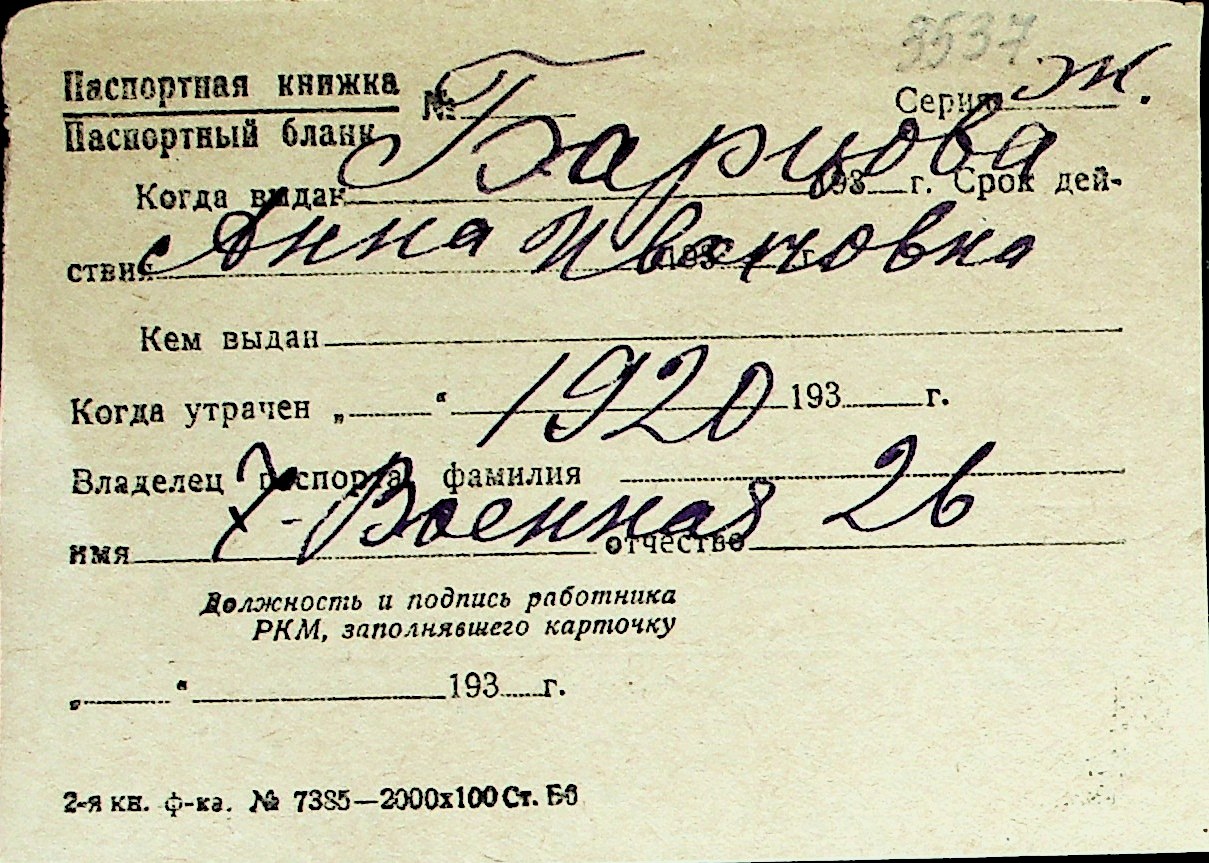 3537
Паспортная книжка
Паспортный бланк № Серия ж.
Барцова
Когда выдан 193 г. Срок дей-
Анна Ивановна
ствия 193 г.
Кем выдан
1920
Когда утрачен „ “ 193 г.
Владелец паспорта фамилия
7-Военная 26
имя отчество
Должность и подпись работника
РКМ, заполнявшего карточку
„ “ 193 г.
2-я кн. ф-ка. № 7385—2000х100 Ст. Бб